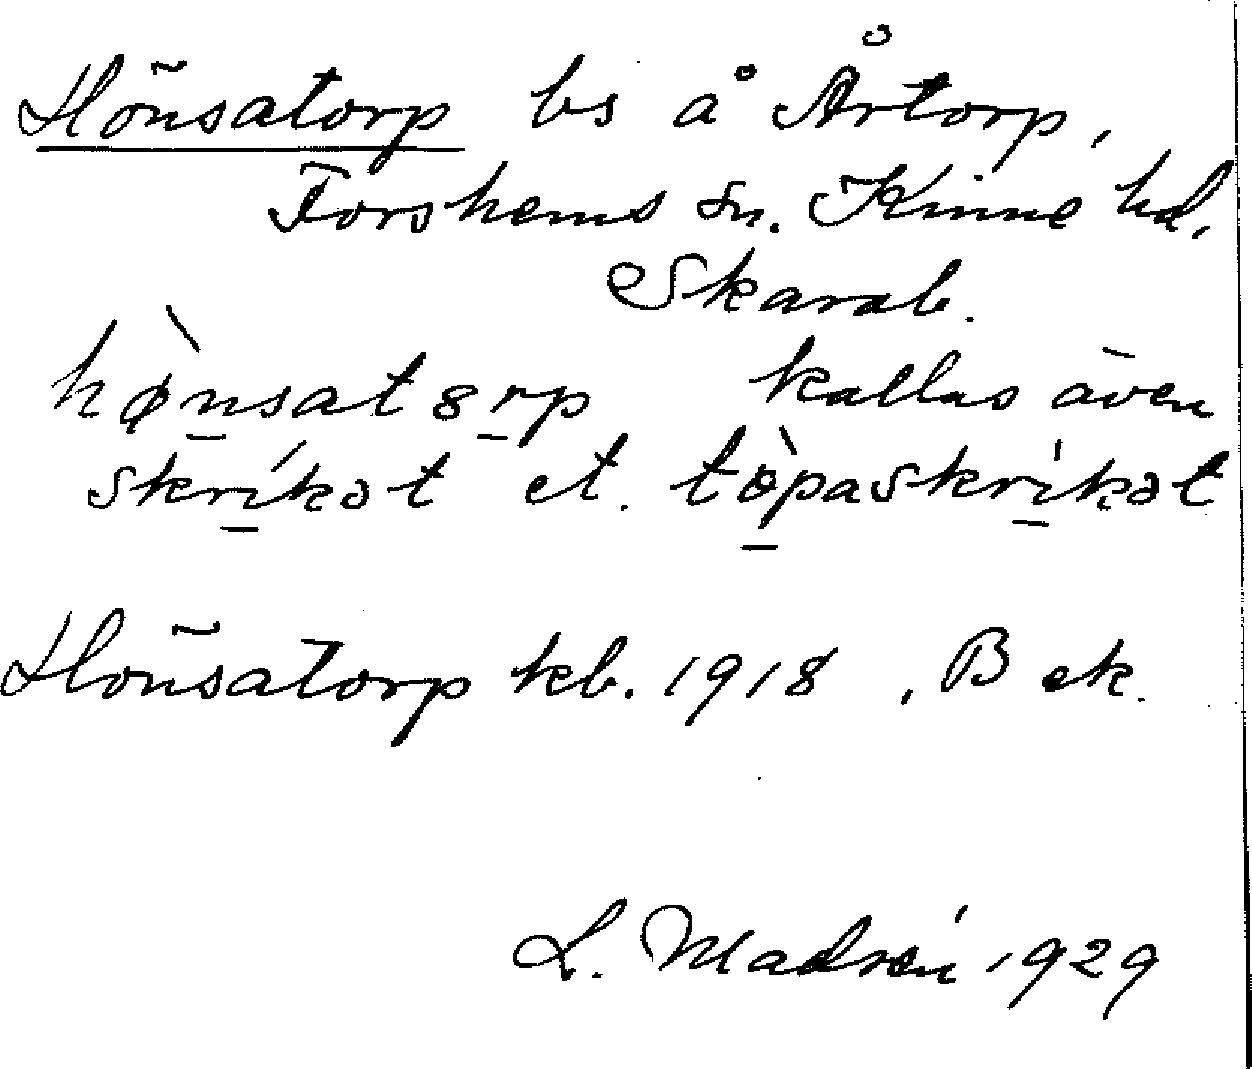 Hönsatorp bs å Årtorp,
Forshems sn. Kinne hd,
Skarab.
hø̀nsatȣrp kallas även
skríkət el. tòpaskrikət
Hönsatorp kb. 1918, B ek.
L. Madsén 1929